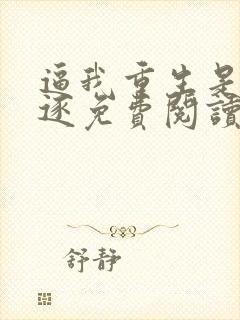 逼我重生是
逐免費閱讀
舒静